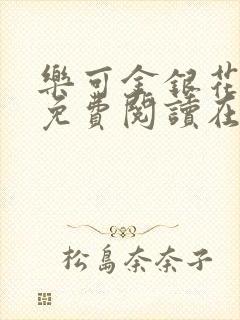 樂可金銀花
免費閱讀在
松島奈奈子